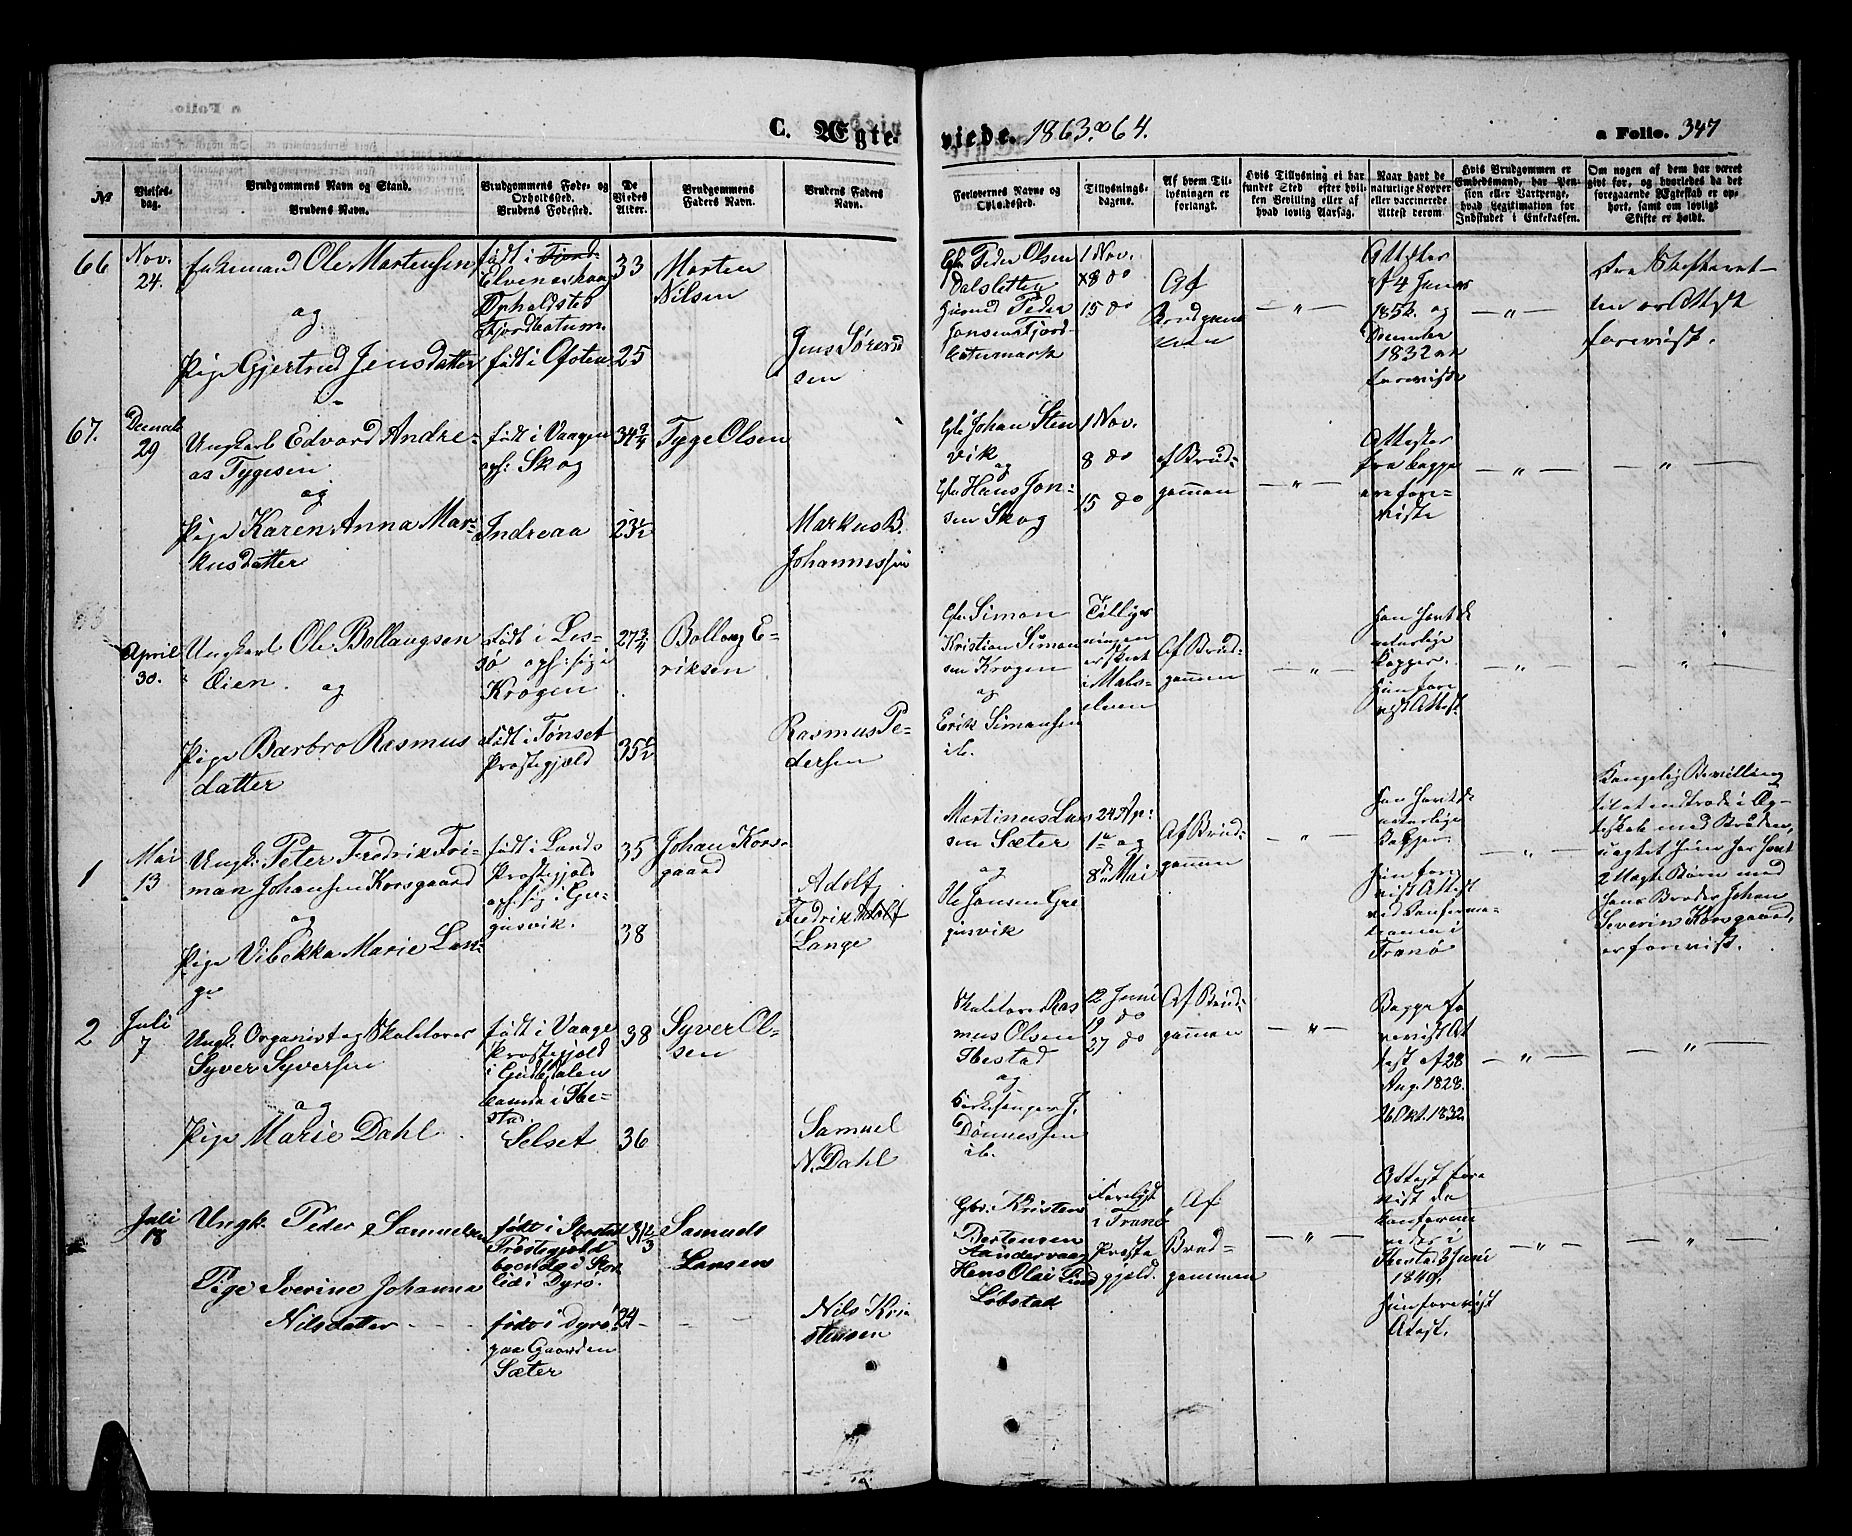 C. Ægte-
viede. 1863 & 64.
a Folio. 347
№
Vielses-
dag.
Brudgommens Navn og Stand.
Brudens Navn.
Brudgommens Føde- og
Opholdsted.
Brudens Fødested.
De
Viedes
Alder.
Brudgommens
Faders Navn.
Brudens Faders
Navn.
Forlovernes Navne og
Opholdssted.
Tillysnings-
dagene.
Af hvem Til-
lysningen er
forlangt.
Hvis Tillysning ei har
fundet Sted efter hvil-
ken Bevilling eller af
hvad lovlig Aarsag.
Naar havt de
naturlige Kopper
eller vaccinerede
Attest derom.
Hvis Brudgommen er
Embedsmand, har Pen-
sion eller Vartpenge,
hvad Legitimation for
Indskudet i Enkekassen.
Om nogen af dem har været
givt før, og hvorledes da det
foregaaende Ægteskab er op-
hørt, samt om lovligt
Skifte er holdt.
66
Nov.
24.
Enkemand Ole Martensen
og
Pige Gjertrud Jensdatter
født i Fjord-
Elvenæshaug
Opholdsted
Fjordbotum.
født i Ofoten
33
25
Morten
Nilsen
Jens Søren
sen
Gbr Peder Olsen
Dalsletten
Peder
Jensen Fjord-
botnmark
1 Nov.
8 do
15 do
Af
Brudgom
men
— " —
Attester
af 4 Janr
1852. og
December
1832 er
foreviste
— " —
Fra Skifteret-
ten er Attest
forevist.
67.
Decemb
29
Ungkarl Edvard Andre-
as Tygesen
og
Pige Karen Anna Mar-
kusdatter
født i Vaagen
oph: Skog
Indreaa
34 3/4
23 1/2
Tyge Olsen
Markus B.
Johannessen
Gbr Johan Sten
vik
og
Gbr Hans Jon-
sen Skog
1 Nov.
8 do
15 do
af Brud-
gommen
— " —
Attester
fra begge
ere fore-
viste
— " —
— " —
April
30.
Ungkarl Ole Bollaugsen
Øien og
Pige Barbro Rasmus
datter
født i Les-
sø oph: sig i
Krogen
født i Tønset
Præstegjæld
27 3/4
35 1/2
Bollaug E-
riksen
Rasmus Pe-
dersen
Gbr Simon
Kristian Simon
sen Krogen
og
Erik Simonsen
ib.
Tillys-
ningen
er skeet
i Mals-
elven
Af Brud-
gommen
— " —
Han havt de
naturlige
Kopper.
Hun fore
vist Attest.
— " —
"
1
Mai
13
Ungk: Peter Fredrik Fri-
man Johansen Korsgaard
og
Pige Vibekka Marie Lan-
ge
født i Lands
Præstegjæld
oph: sig i Gre-
gusvik.
35
38
Johan Kors-
gaard
Adolf
Fredrik Adolf
Lange
Martinus Lars
sen Sæter
og
Ole Jensen Gre
gusvik
24 Ap:
1te og
8de Mai
Af Brud-
gommen
— " —
Han havt de
naturlige
Kopper.
Hun fore-
vist Attest
ved Konferma-
tionen i
Tranø
— " —
Kongelig Bevilling
til at indtræde i Æg-
teskab med Bruden,
uagtet hun har havt
2 Uægte Børn med
hans Broder Johan
Severin Korsgaard,
er forevist.
2
Juli
7
Ungk. Organist og Skolelærer
Syver Syversen
og
Pige Marie Dahl
født i Vaage
Præstegjæld
i Gudbdalen
boende i Ibe-
stad.
Selset
38
36
Syver Ol-
sen
Samuel
N. Dahl
Skolelærer Ras
mus Olsen
Ibestad
og
Kirkesanger J.
Dønnessen
ib.
12 Juni
19 do
27 do
Af Brud-
gommen
— " —
Begge fo
revist At
test af 28
Aug. 1828.
26 Okt. 1832
— " —
— " —
Juli
18
Ungk. Peder Samuelsen
Pige Iverine Johanna
Nilsdatter
født i Ibestad
Præstegjæld
boende i Stor
lid i Dyrø.
født i Dyrø
paa Gaarden
Sæter
31 2/3
24
Samuels
Larsen
Nils Kri
stensen
Gbr. Kristen
Bertensen
Aandervaag
Hans Olai Lind
Løbstad
Forlyst
i Tranø
Præste
gjæld.
Af
Brud-
gommen
— " —
Attest fore
vist da
konfirme
redes i
Ibestad 3 Juni
1849.
Hun forevist
Attest.
— " —
— " —